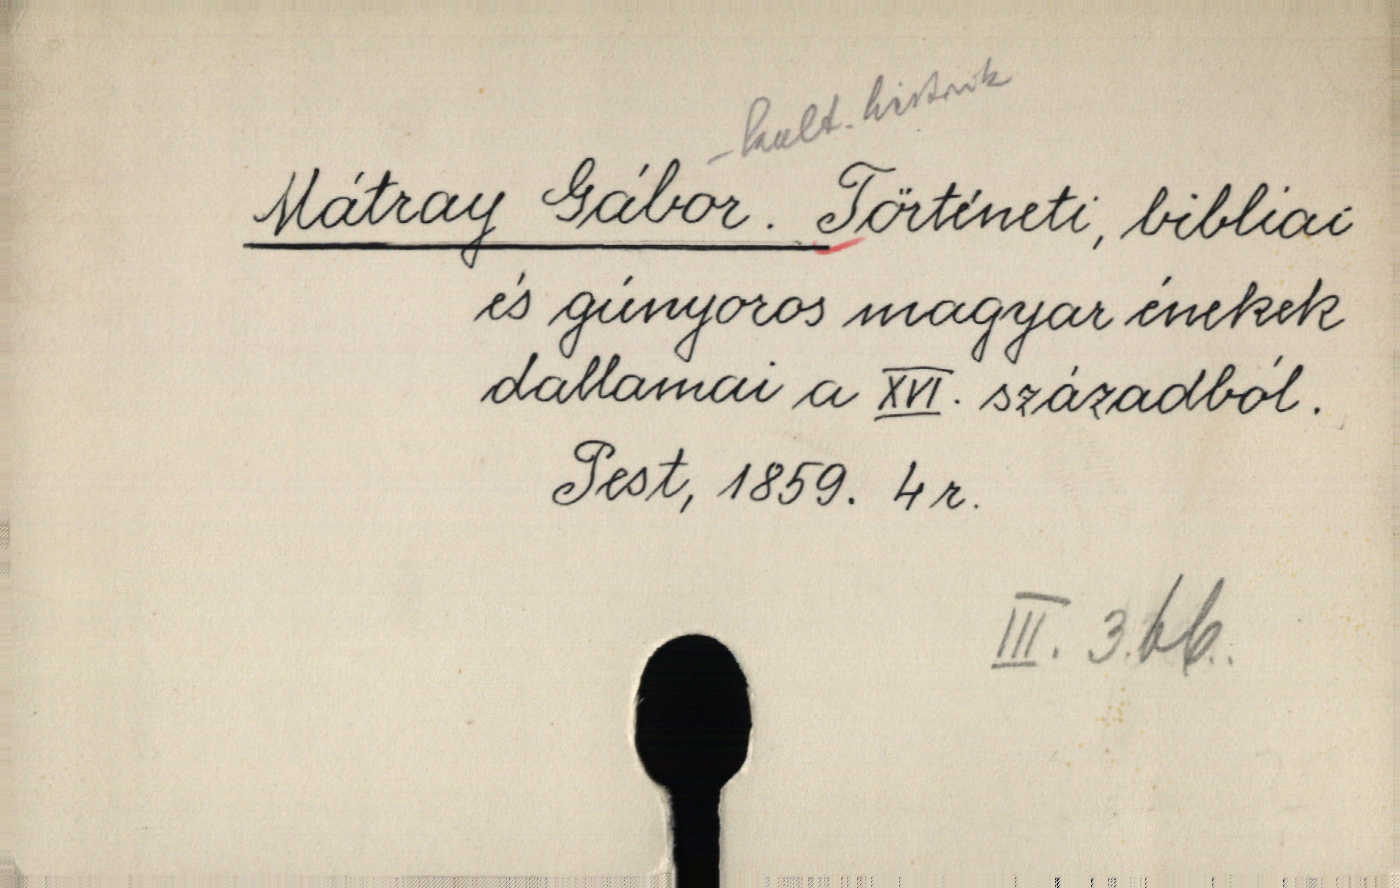 - kult. histórik
Mátray Gábor. Történeti, bibliai
és gúnyoros magyar énekek
dallamai a XVI. századból.
Pest, 1859. 4 r.
III. 3.